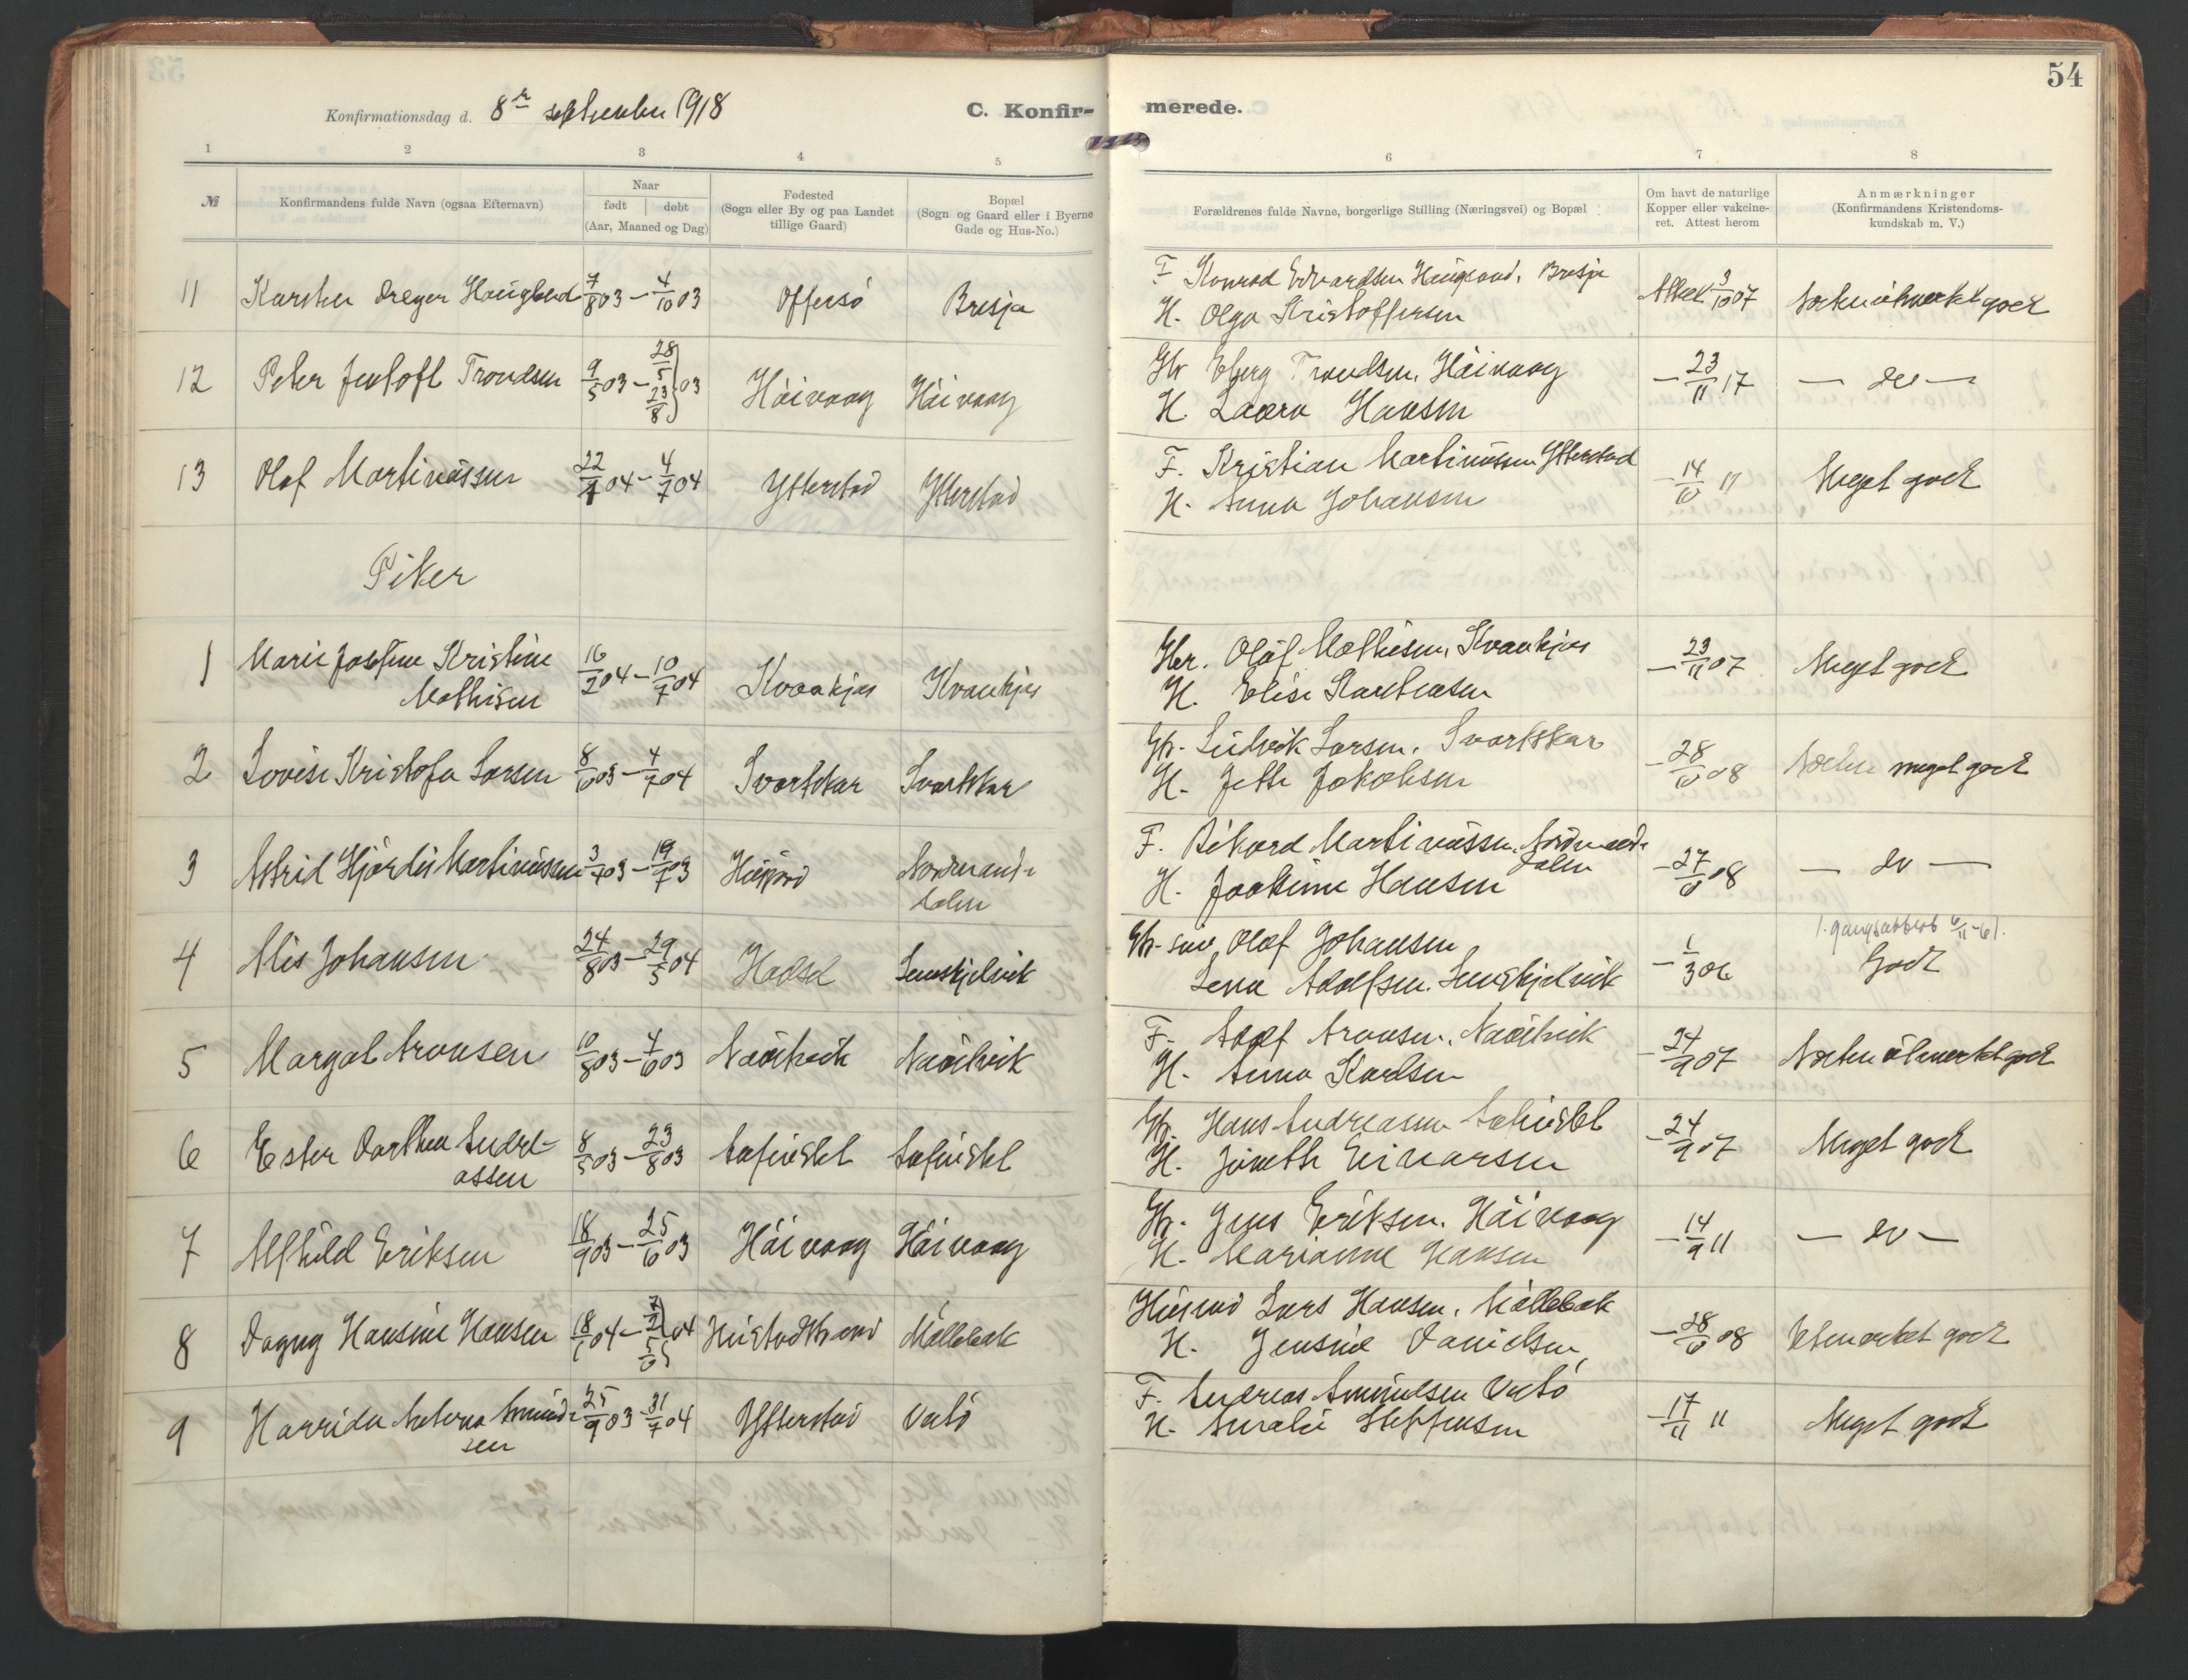 54
Konfirmationsdag d. 8de september 1918
C. Konfir- merede.
1 2 3 4 5 6 7 8
№
Konfirmandens fulde Navn (ogsaa Efternavn)
Naar
født | døbt
(Aar, Maaned og Dag)
Fødested
(Sogn eller By og paa Landet
tillige Gaard)
Bopæl
(Sogn og Gaard eller i Byerne
Gade og Hus-No.)
Forældrenes fulde Navne, borgerlige Stilling (Næringsvei) og Bopæl
Om havt de naturlige
Kopper eller vakcine-
ret. Attest herom
Anmærkninger
(Konfirmandens Kristendoms-
kundskab m. V.)
11 Karsten Dreyer Haugland 7/8 03 – 4/10 03 Offersö Bresja
F Konrad Edvardsen Haugland, Bresja
H. Olga Kristoffersen
Attest 3/10 07 Næsten utmerket godt
12 Peter Jentoft Trondsen 9/5 03 – 28/5 23/8 } 03 Höivaag Höivaag
Gbr Eberg Trondsen, Höivaag
H. Laura Hansen
– 23/11 17 – do –
13 Olaf Martinussen 22/4 04 – 4/7 04 Ytterstad Ytterstad
F. Kristian Martinussen Ytterstad
H. Anna Johansen
– 14/10 11 Meget godt
Piker
1 Marie Josefine Kristine
Mathisen
16/2 04 – 10/7 04 Kvankjos Kvankjos
Gbr. Oluf Mathisen, Kvankjos
H. Elise Karstensen
– 23/11 07 Meget godt
2 Lovise Kristofa Larsen 8/10 03 – 4/7 04 Svartskar Svartskar
Gbr. Ludvik Larsen, Svartskar
H. Jette Jakobsen
– 28/10 08 Næsten meget godt
3 Astrid Hjördis Martinussen 3/7 03 – 19/7 03
Nordmands
dalen
F. Rikard Martinussen, Nordmands
dalen
H. Joakime Hansen
– 27/10 08 – do –
4 Alis Johansen 24/8 03 – 29/5 04 Hadsel
Gbr. Olaf Johansen
Lena Adolfsen.
– 1/3 06
Godt
5 Margot Aronsen 10/8 03 – 4/6 03
F. Adolf Aronsen,
H. Anna Karlsen
– 24/9 07 Næsten utmerket godt
6 Ester Dorthea Andre-
assen
8/5 03 – 23/8 03
Gbr. Hans Andreasen
H. Einarsen
– 24/9 07 Meget godt
7 Alfhild Eriksen 18/9 03 – 25/10 03 Höivaag Höivaag
Gbr. Jens Eriksen, Höivaag
H. Marianne Hansen
– 14/9 11 – do –
8 Dagny Hansine Hansen 18/1 04 – 7/2 5/6 } 04 Möllebæk
Husmand Lars Hansen, Möllebæk
H. Jensine Danielsen,
– 28/10 08 Utmerket godt
9 Harrida Amund-
sen
25/9 03 – 31/7 04 Ytterstad
F. Andreas Amundsen
H. Amalie Steffensen
– 17/11 11 Meget godt